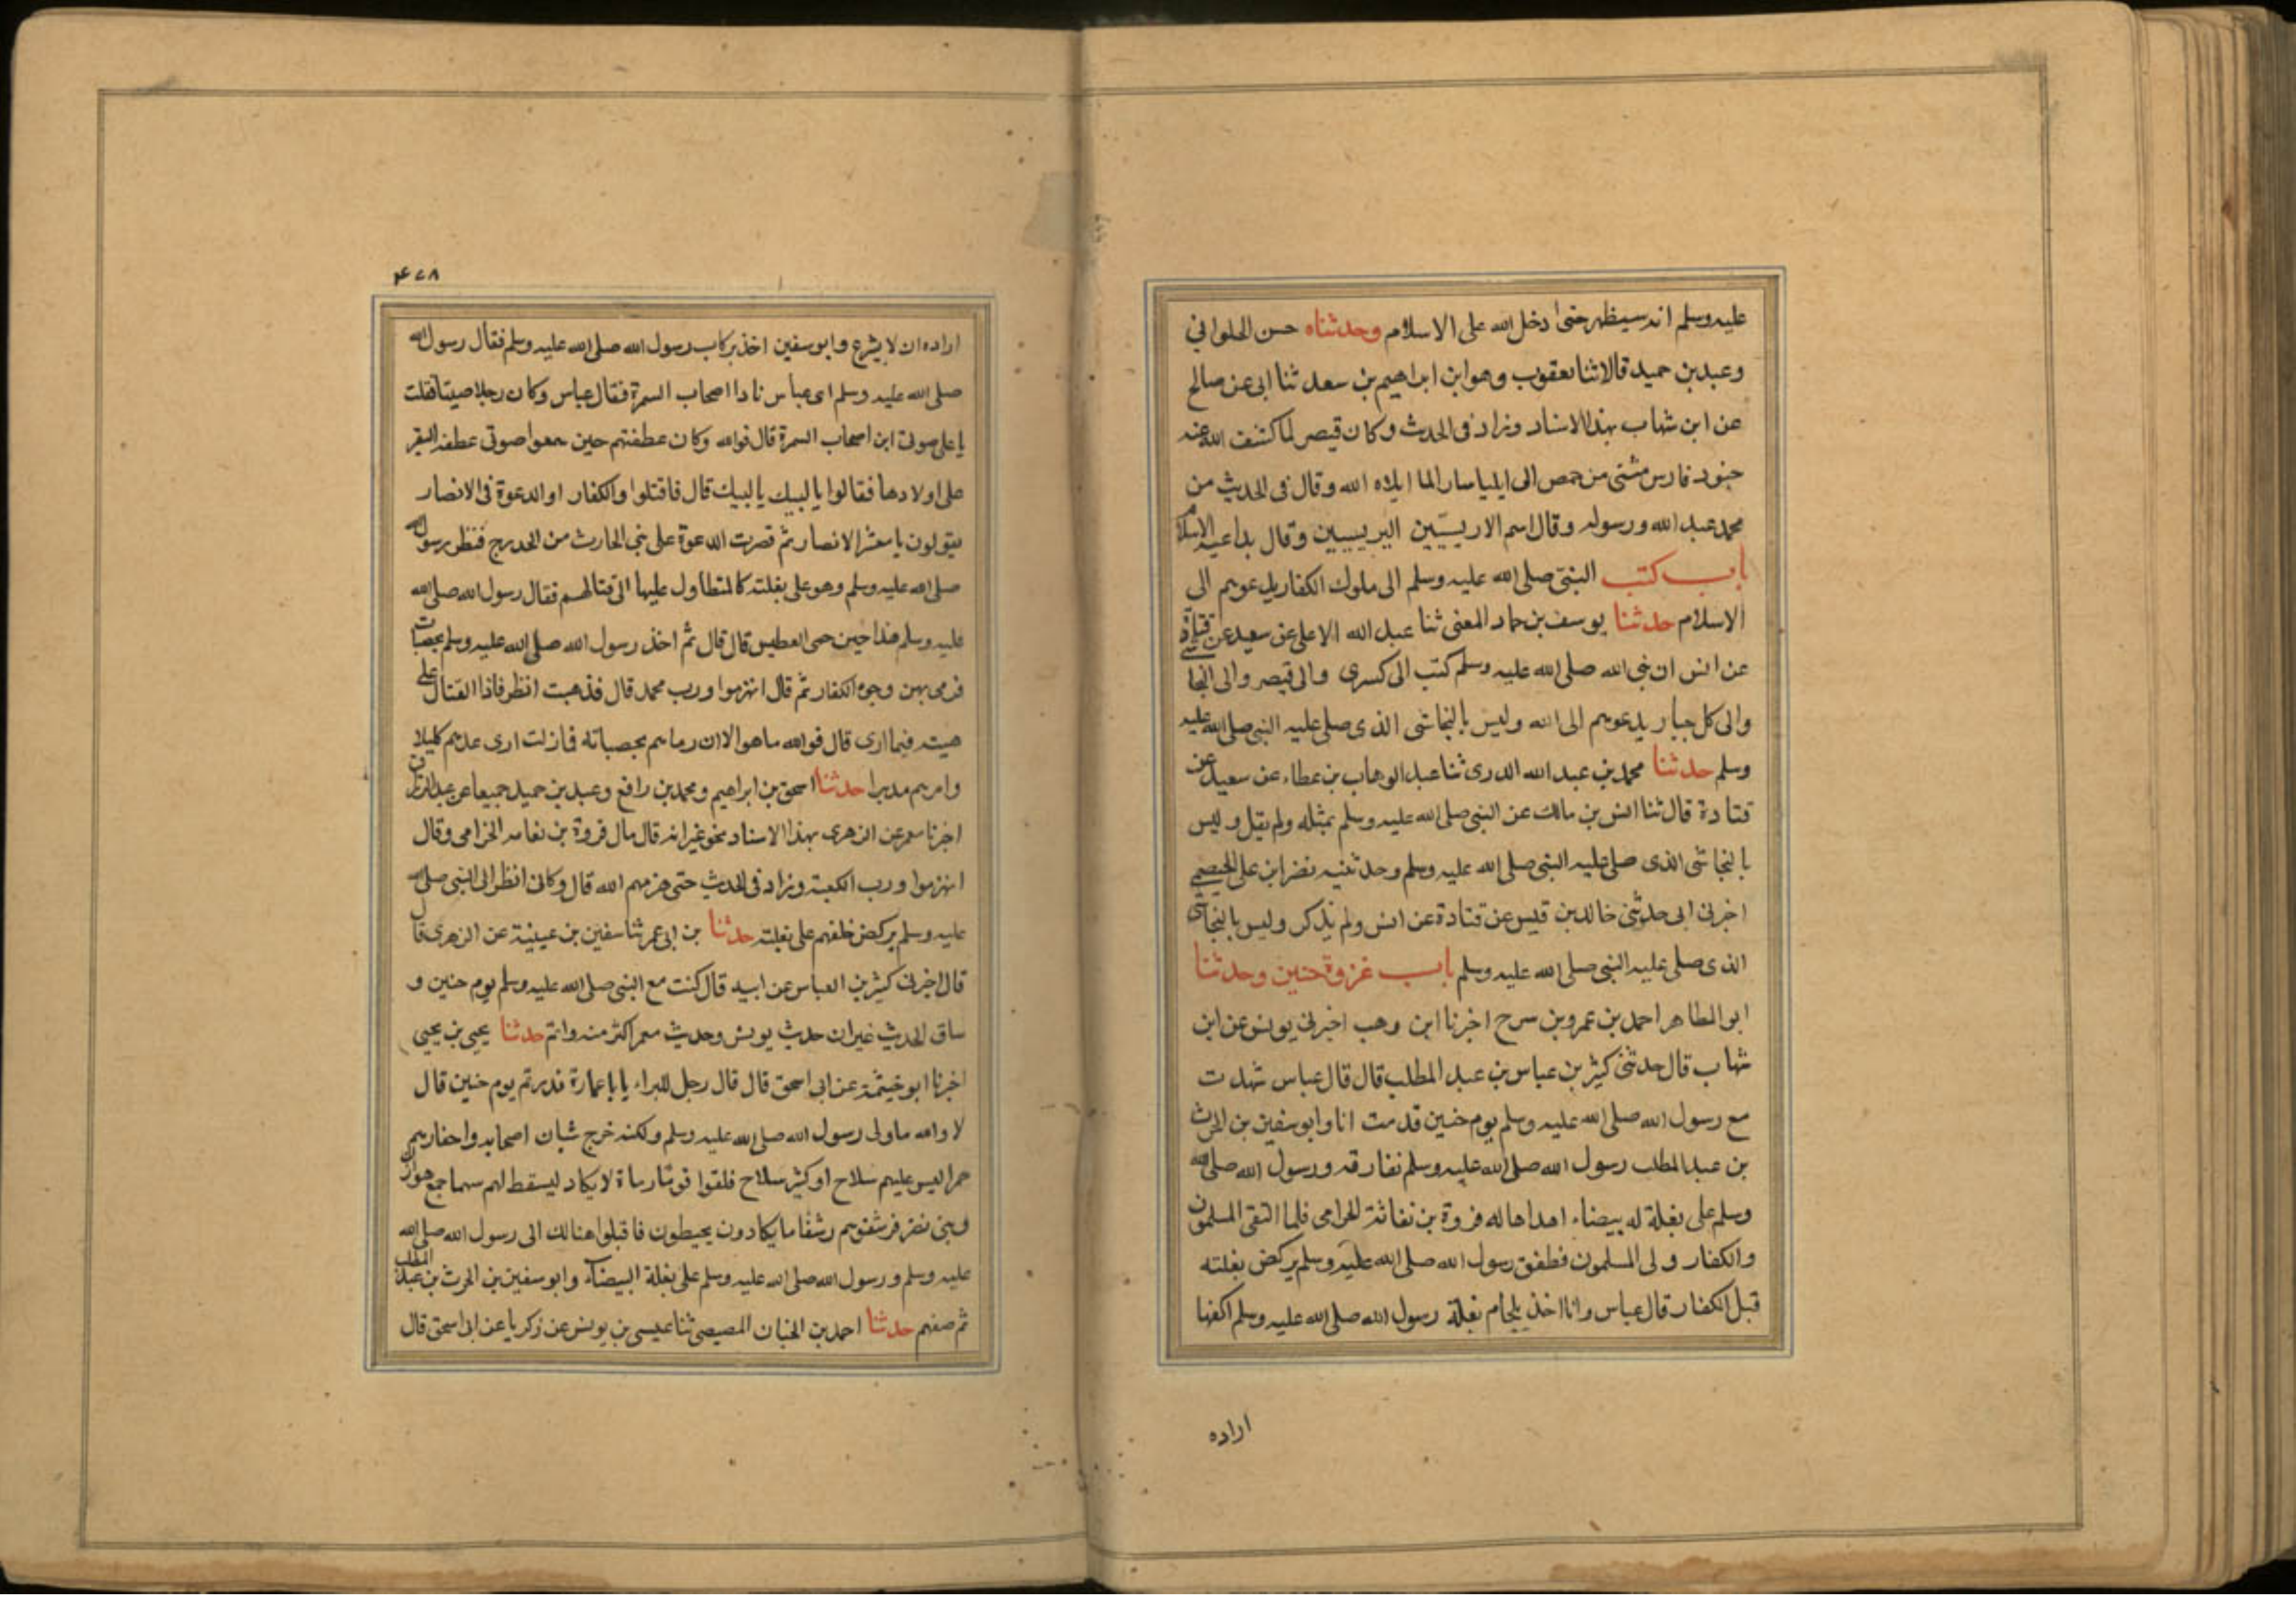 عليه وسلم انه سيظهر حتى ادخل الله على الاسلام وحدثناه حسن الحلواني
وعبد بن حميد قالا ثنا يعقوب وهو ابن ابراهيم بن سعد ثنا ابي عن صالح
عن ابن شهاب بهذا الاسناد وزاد في الحديث وكان قيصر لما كشف الله عنه
جنود فارس مشى من حمص الى ايليا الما ابلاه الله وقال في الحديث من
محمد عبد الله ورسوله وقال اسم الاريسيين اليريسيين وقال بداعية الاسلام
باب كتب النبي صلى الله عليه وسلم الى ملوك الكفار يدعوهم الى
الاسلام حدثنا يوسف بن حماد المعنى ثنا عبد الاعلى عن سعيد عن قتادة
عن انس ان نبي الله صلى الله عليه وسلم كتب الى كسرى والى قيصر والى النجاشي
والى كل جبار يدعوهم الى الله وليس بالنجاشي الذى صلى عليه النبي صلى الله عليه
وسلم حدثنا محمد بن عبد الله الدرى ثنا عبد الوهاب بن عطاء عن سعيد عن
قتادة قال ثنا انس بن مالك عن النبي صلى الله عليه وسلم بمثله ولم يقل وليس
بالنجاشي الذى صلى عليه النبي صلى الله عليه وسلم وحدثنيه نضر ابن على الجهضمي
اخبرني ابي حدثني خالد بن قيس عن قتادة عن انس ولم يذكر وليس بالنجاشي
الذى صلى عليه النبي صلى الله عليه وسلم باب غزوة حنين وحدثنا
ابو الطاهر احمد بن عمرو بن سرح اخبرنا ابن وهب اخبرني يونس عن ابن
شهاب قال حدثني كثير بن عباس بن عبد المطلب قال قال عباس شهدت
مع رسول الله صلى الله عليه وسلم يوم حنين قدمت انا وابو سفين بن الحرث
بن عبد المطلب رسول الله صلى الله عليه وسلم نفارقه ورسول الله صلى الله
وسلم على بغلة له بيضاء اهداها له فروة بن نفاثة الخرامى فلما التقى المسلمون
والكفار ولى المسلمون فطفق رسول الله صلى الله عليه وسلم يركض بغلته
قبل الكفار قال عباس وانا اخذ بلجام بغلة رسول الله صلى الله عليه وسلم اكفها
اراده
۴۷۸
اراده ان لا يشرع وابو سفين اخذ بركاب رسول الله صلى الله عليه وسلم فقال رسول الله
صلى الله عليه وسلم اى عباس نادا اصحاب السمرة فقال عباس وكان رجلا صيتا فقلت
يا على صوتى اين اصحاب السمرة قال فوالله وكان عطفتهم حين سمعوا صوتى عطفه البقر
على اولادها فقالوا يا لبيك يا لبيك قال فاقتلوا والكفار او الدعوة فى الانصار
يقولون يا معشر الانصار ثم قصرت الدعوة على بنى الحارث من الخدرج فنظر رسول الله
صلى الله عليه وسلم وهو على بغلته كالمتطاول عليها الى قتالهم فقال رسول الله صلى الله
عليه وسلم هذا حين حمى الوطيس قال قال ثم اخذ رسول الله صلى الله عليه وسلم بحصبات
فرمى بهن وجوه الكفار ثم قال انهزموا ورب محمد قال فذهبت انظر فاذا القتال على
هيته فيما ارى قال فوالله ما هو الا ان رماهم بحصباته فما زلت ارى حدهم كليلا
وامرهم مدبرا حدثنا اسحق بن ابراهيم ومحمد بن رافع وعبد بن حميد جميعا عن عبد الرزاق
اخبرنا معمر عن الزهرى بهذا الاسناد نحو غير انه قال مال فروة بن نعامه الخزامى وقال
انهزموا ورب الكعبة وزاد فى الحديث حتى هزمهم الله قال وكانى انظر الى النبي صلى الله
عليه وسلم يركض خلفهم على بغلته حدثنا بن ابى عمر ثنا سفين بن عيينة عن الزهرى قال
قال اخبرنى كثير بن العباس عن ابيه قال كنت مع النبي صلى الله عليه وسلم يوم حنين و
ساق الحديث غير ان حديث يونس وحديث معمر اكثر منه واتم حدثنا يحيى بن يحيى
اخبرنا ابو خيثمة عن ابى اسحق قال قال رجل للبراء يا با عمارة فررتم يوم حنين قال
لا والله ما ولى رسول الله صلى الله عليه وسلم ولكنه خرج شبان اصحابه واخفاؤهم
حسرا ليس عليهم سلاح او كثير سلاح فلقوا قوما رماة لا يكاد ليسقط لهم سهما جمع هوازن
وبنى نضر فرشقوهم رشقا ما يكادون يخطون فاقبلوا هنالك الى رسول الله صلى الله
عليه وسلم ورسول الله صلى الله عليه وسلم على بغلة البيضاء وابو سفين بن الحرث بن عبد المطلب
ثم صفهم حدثنا احمد بن الجنان المصيصى ثنا عيسى بن يونس عن زكريا عن ابى اسحق قال